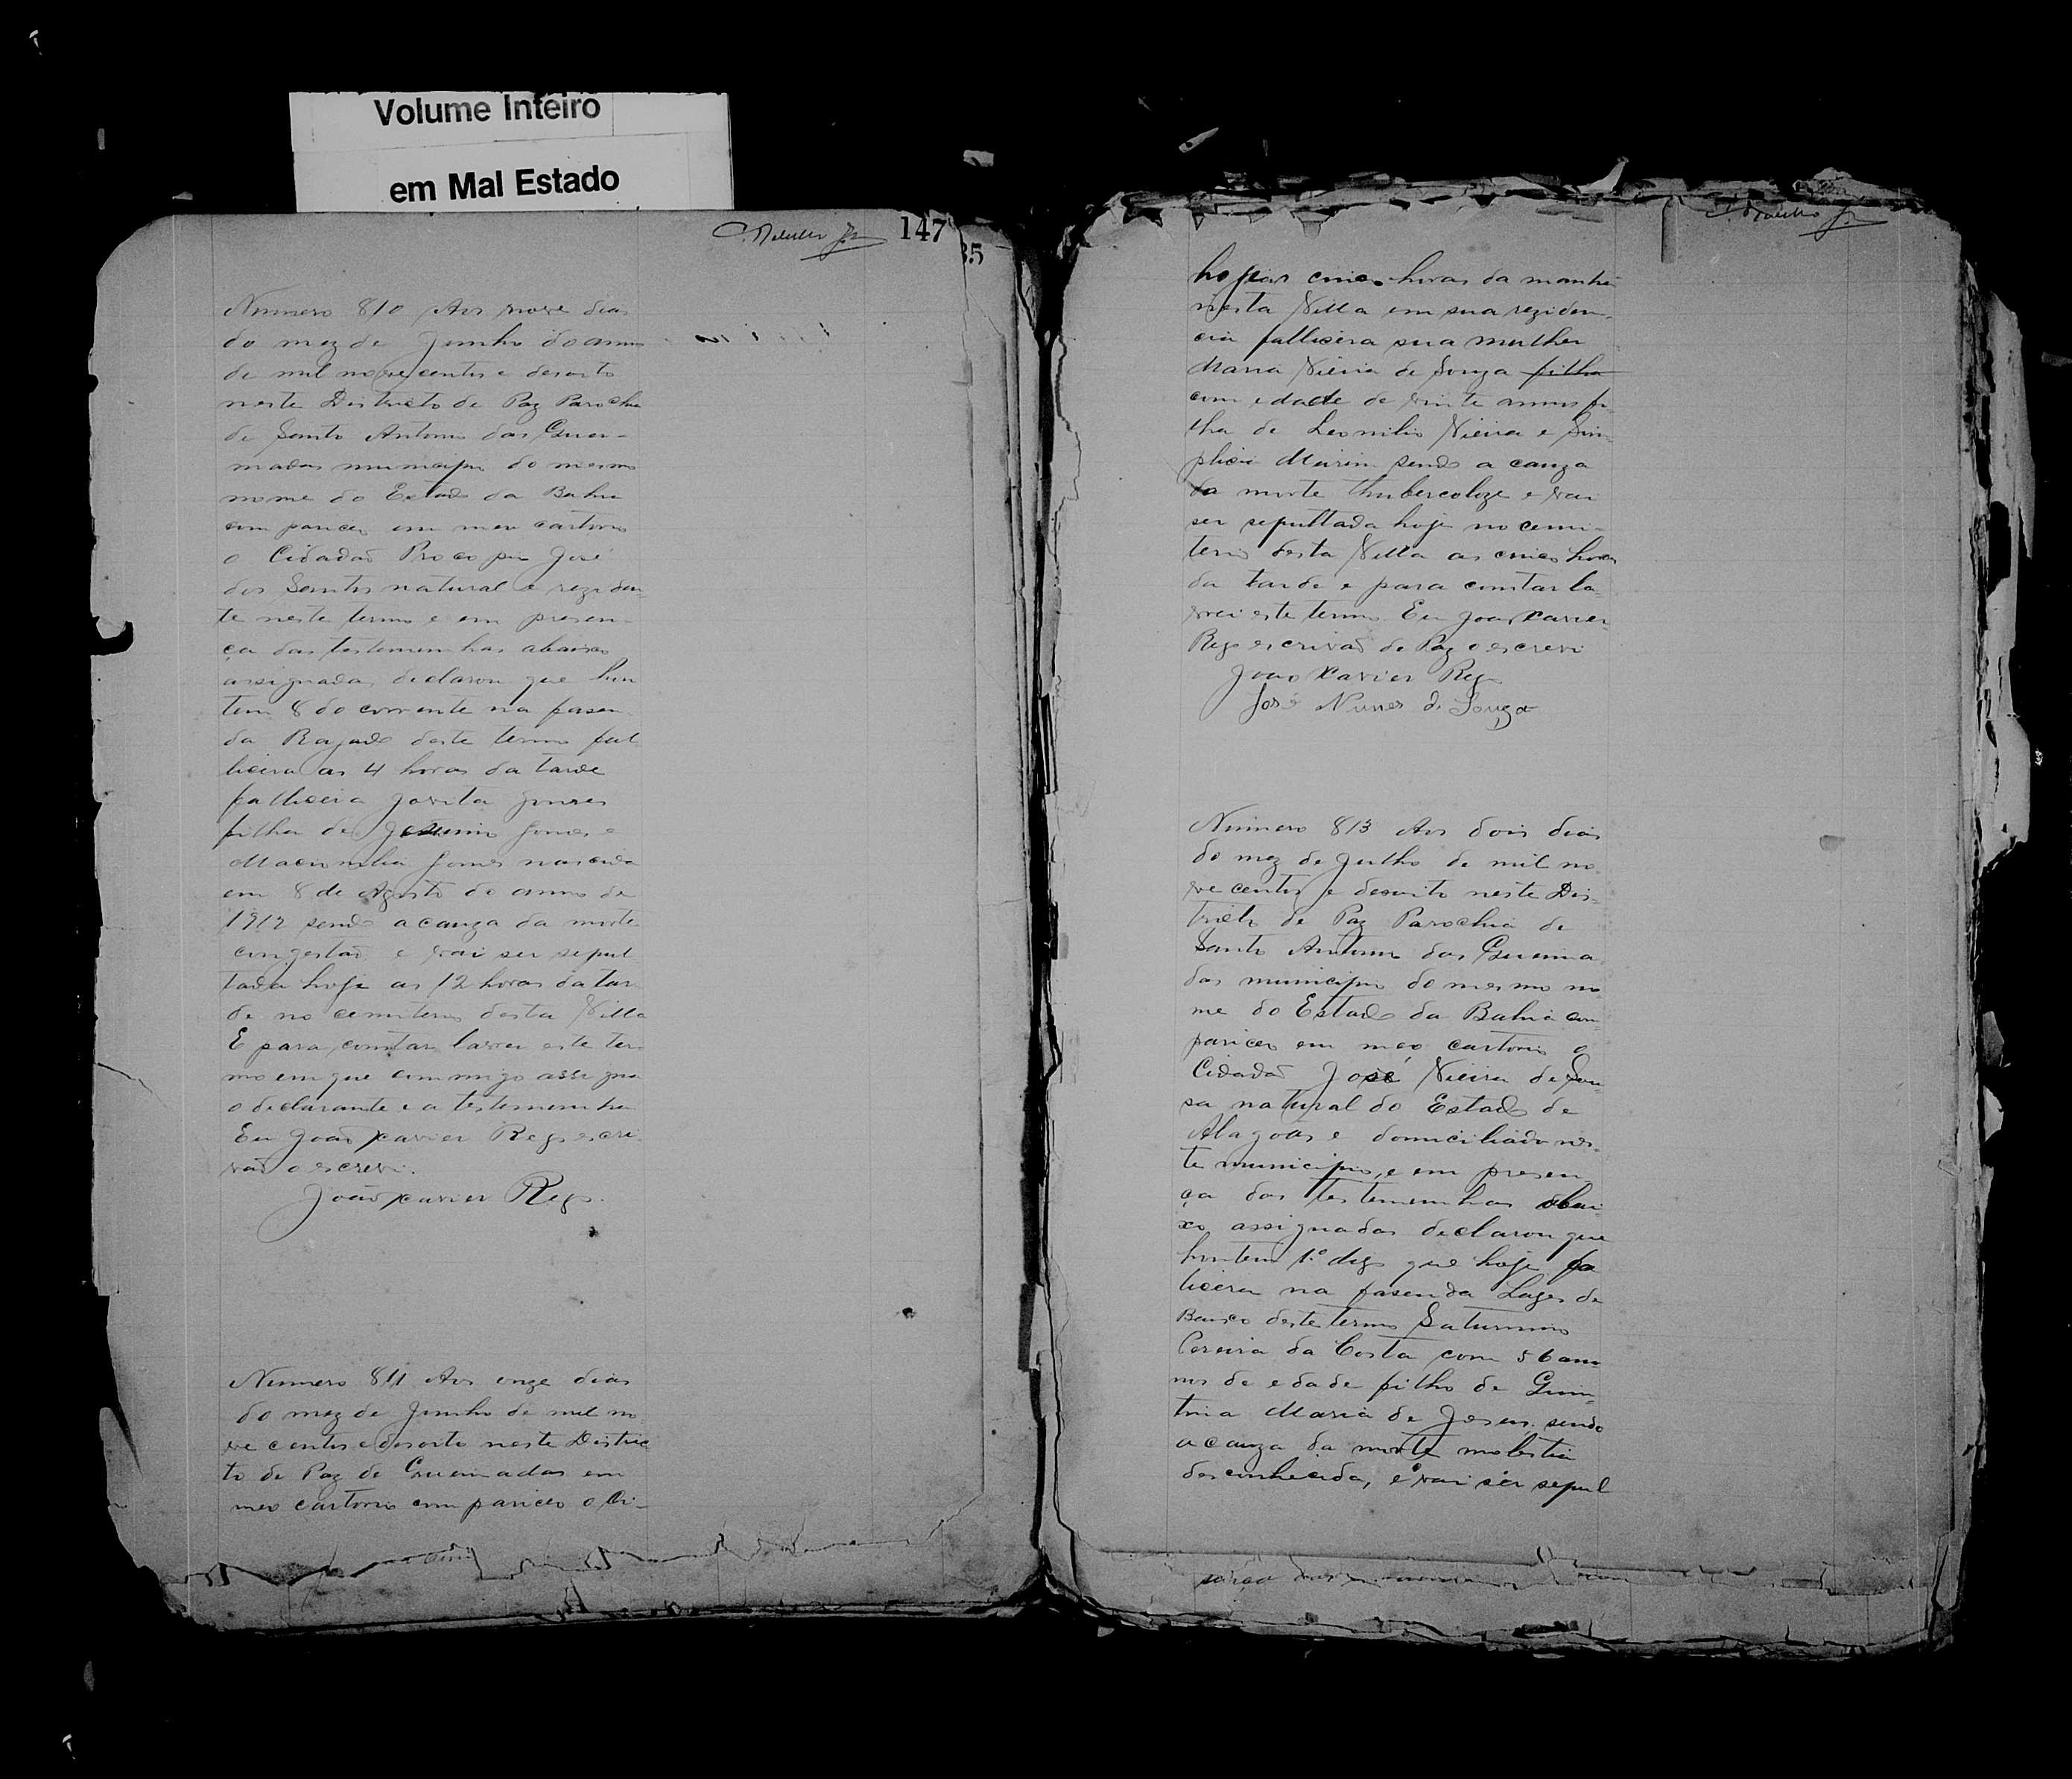 Volume Inteiro
em Mal Estado
147
35
Numero 810 Aos nove dias
do mez de Junho do anno
de mil novecentos e desoito
neste Districto de Paz Parochia
de Santo Antonio das Quei-
madas municipio do mesmo
nome do Estado da Bahia
com pariceo em meu cartorio
o Cidadaõ Procopio José
dos Santos natural e reziden
te neste termo e em presen-
ça das testemunhas abaixo
assignada, declarou que hon
tem 8 do corrente na fasen
da Rajada deste termo fal
liceira as 4 horas da tarde
falliceira Jovita Gomes
filha de Gomes e
Gomes nascida
em 8 de Agosto do anno de
1912 sendo a cauza da morte
congestaõ e vai ser sepul
tada hoje as 12 horas da tar
de no cemiterio desta Villa
E para constar lavrei este ter
mo em que commigo assigna
o declarante e a testemunha
Eu Joaõ Xavier Rego escri-
vaõ o escrevi.
Joaõ Xavier Rego.
Numero 811 Aos onze dias
do mez de Junho de mil no
ve centos e desoito neste Distric
to de Paz de Queimadas em
meo cartorio com pariceo o Ci-
horas da manhã
nesta Villa em sua reziden-
cia fallicera sua mulher
Maria Vieira de Souza filha
com edade de vinte annos fi-
lha de Leonilio Vieira e Sim
plicia sendo a cauza
da morte thubercoloze e vai
ser sepultada hoje no cemi-
terio desta Villa as cinco horas
da tarde e para constar la-
vrei este termo. Eu Joaõ Xavier
Rego escrivaõ de Paz o escrevi
Joaõ Xavier Rego
José Nunes de Souza
Numero 813 Aos dois dias
do mez de Julho de mil no-
ve centos e desoito neste Dis-
tricto de Paz Parochia de
Santo Antonio das Queima
das municipio do mesmo no
me do Estado da Bahia com
pariceo em meo cartorio o
Cidadaõ José Vieira de Sou-
sa natural do Estado de
Alagoas e domiciliado nes-
te municipio, e em presen
ça das testemunhas abai
xo assignadas declarou que
hontem 1º digo que hoje fa
licera na fasenda Lages de
Baixo deste termo Saturnino
Pereira da Costa com 56 ann
nos de edade filho de Quin-
tina Maria de Jesus. sendo
a cauza da morte molestia
desconhecida, e vai ser sepul